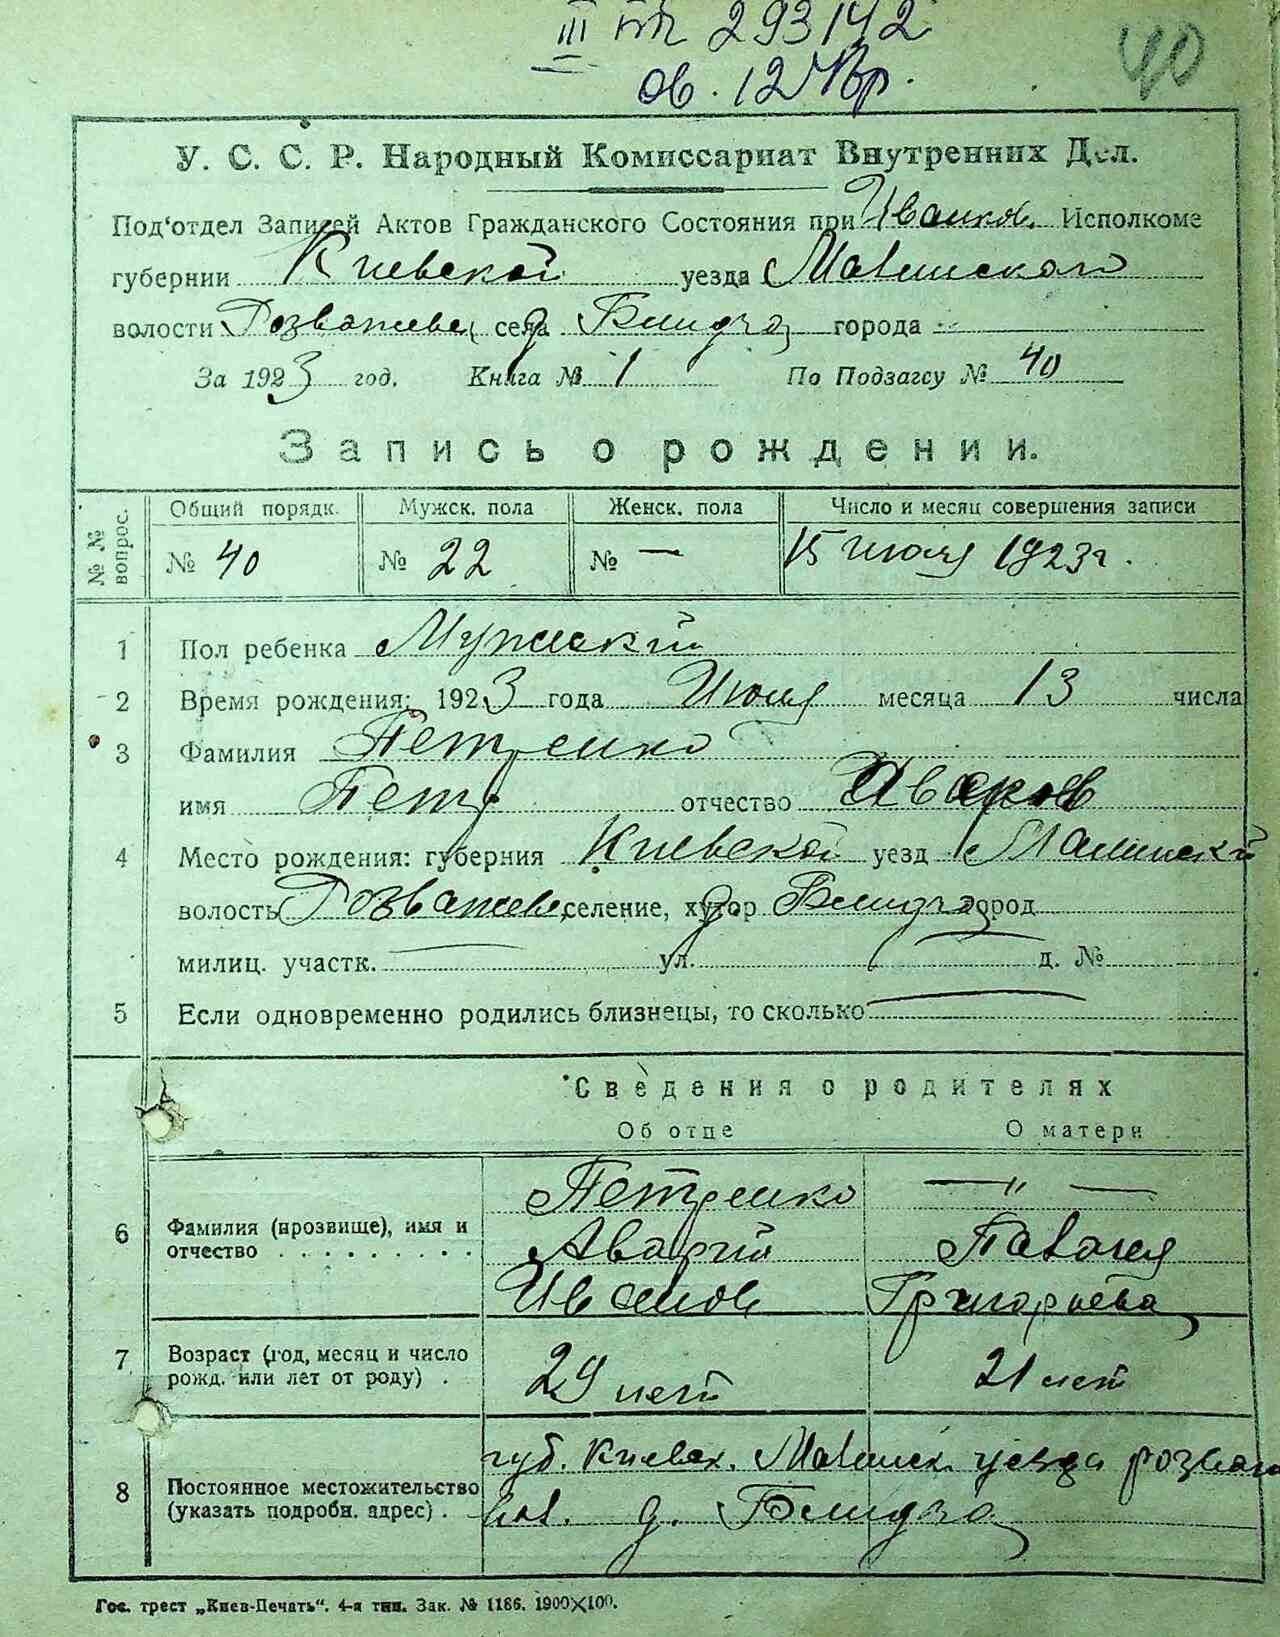 III 293142
40
У. С. С. Р. Народный Комиссариат Внутренних Дел.
Под'отдел Записей Актов Гражданского Состояния при Иванков. Исполкоме
губернии Киевской уезда Малинского
волости Розважев, села д Блидча города
За 1923 год. Книга № 1 По Подзагсу № 40
Запись о рождении.
№ № вопрос. Общий порядк. Мужск. пола Женск. пола Число и месяц совершения записи
№ 40 № 22 № — 15 июля 1923 г.
1 Пол ребенка Мужеский
2 Время рождения: 1923 года Июля месяца 13 числа
3 Фамилия Петренко
имя Петр отчество
4 Место рождения: губерния Киевской уезд Малинский
волость Розважев, селение, хутор д. Блидча город
милиц. участк. — ул. — д. №
5 Если одновременно родились близнецы, то сколько —
Сведения о родителях
Об отце О матери
6 Фамилия (прозвище), имя и отчество . . . . . . . . .
Петренко — " —
Иванов Григорьева
7 Возраст (год, месяц и число рожд. или лет от роду) . 29 лет 21 лет
8 Постоянное местожительство (указать подробн. адрес) .
губ. Киевск. Малинск. уезда розваж
вол. д. Блидча
Гос. трест „Киев-Печать“. 4-я тип. Зак. № 1186. 1900×100.